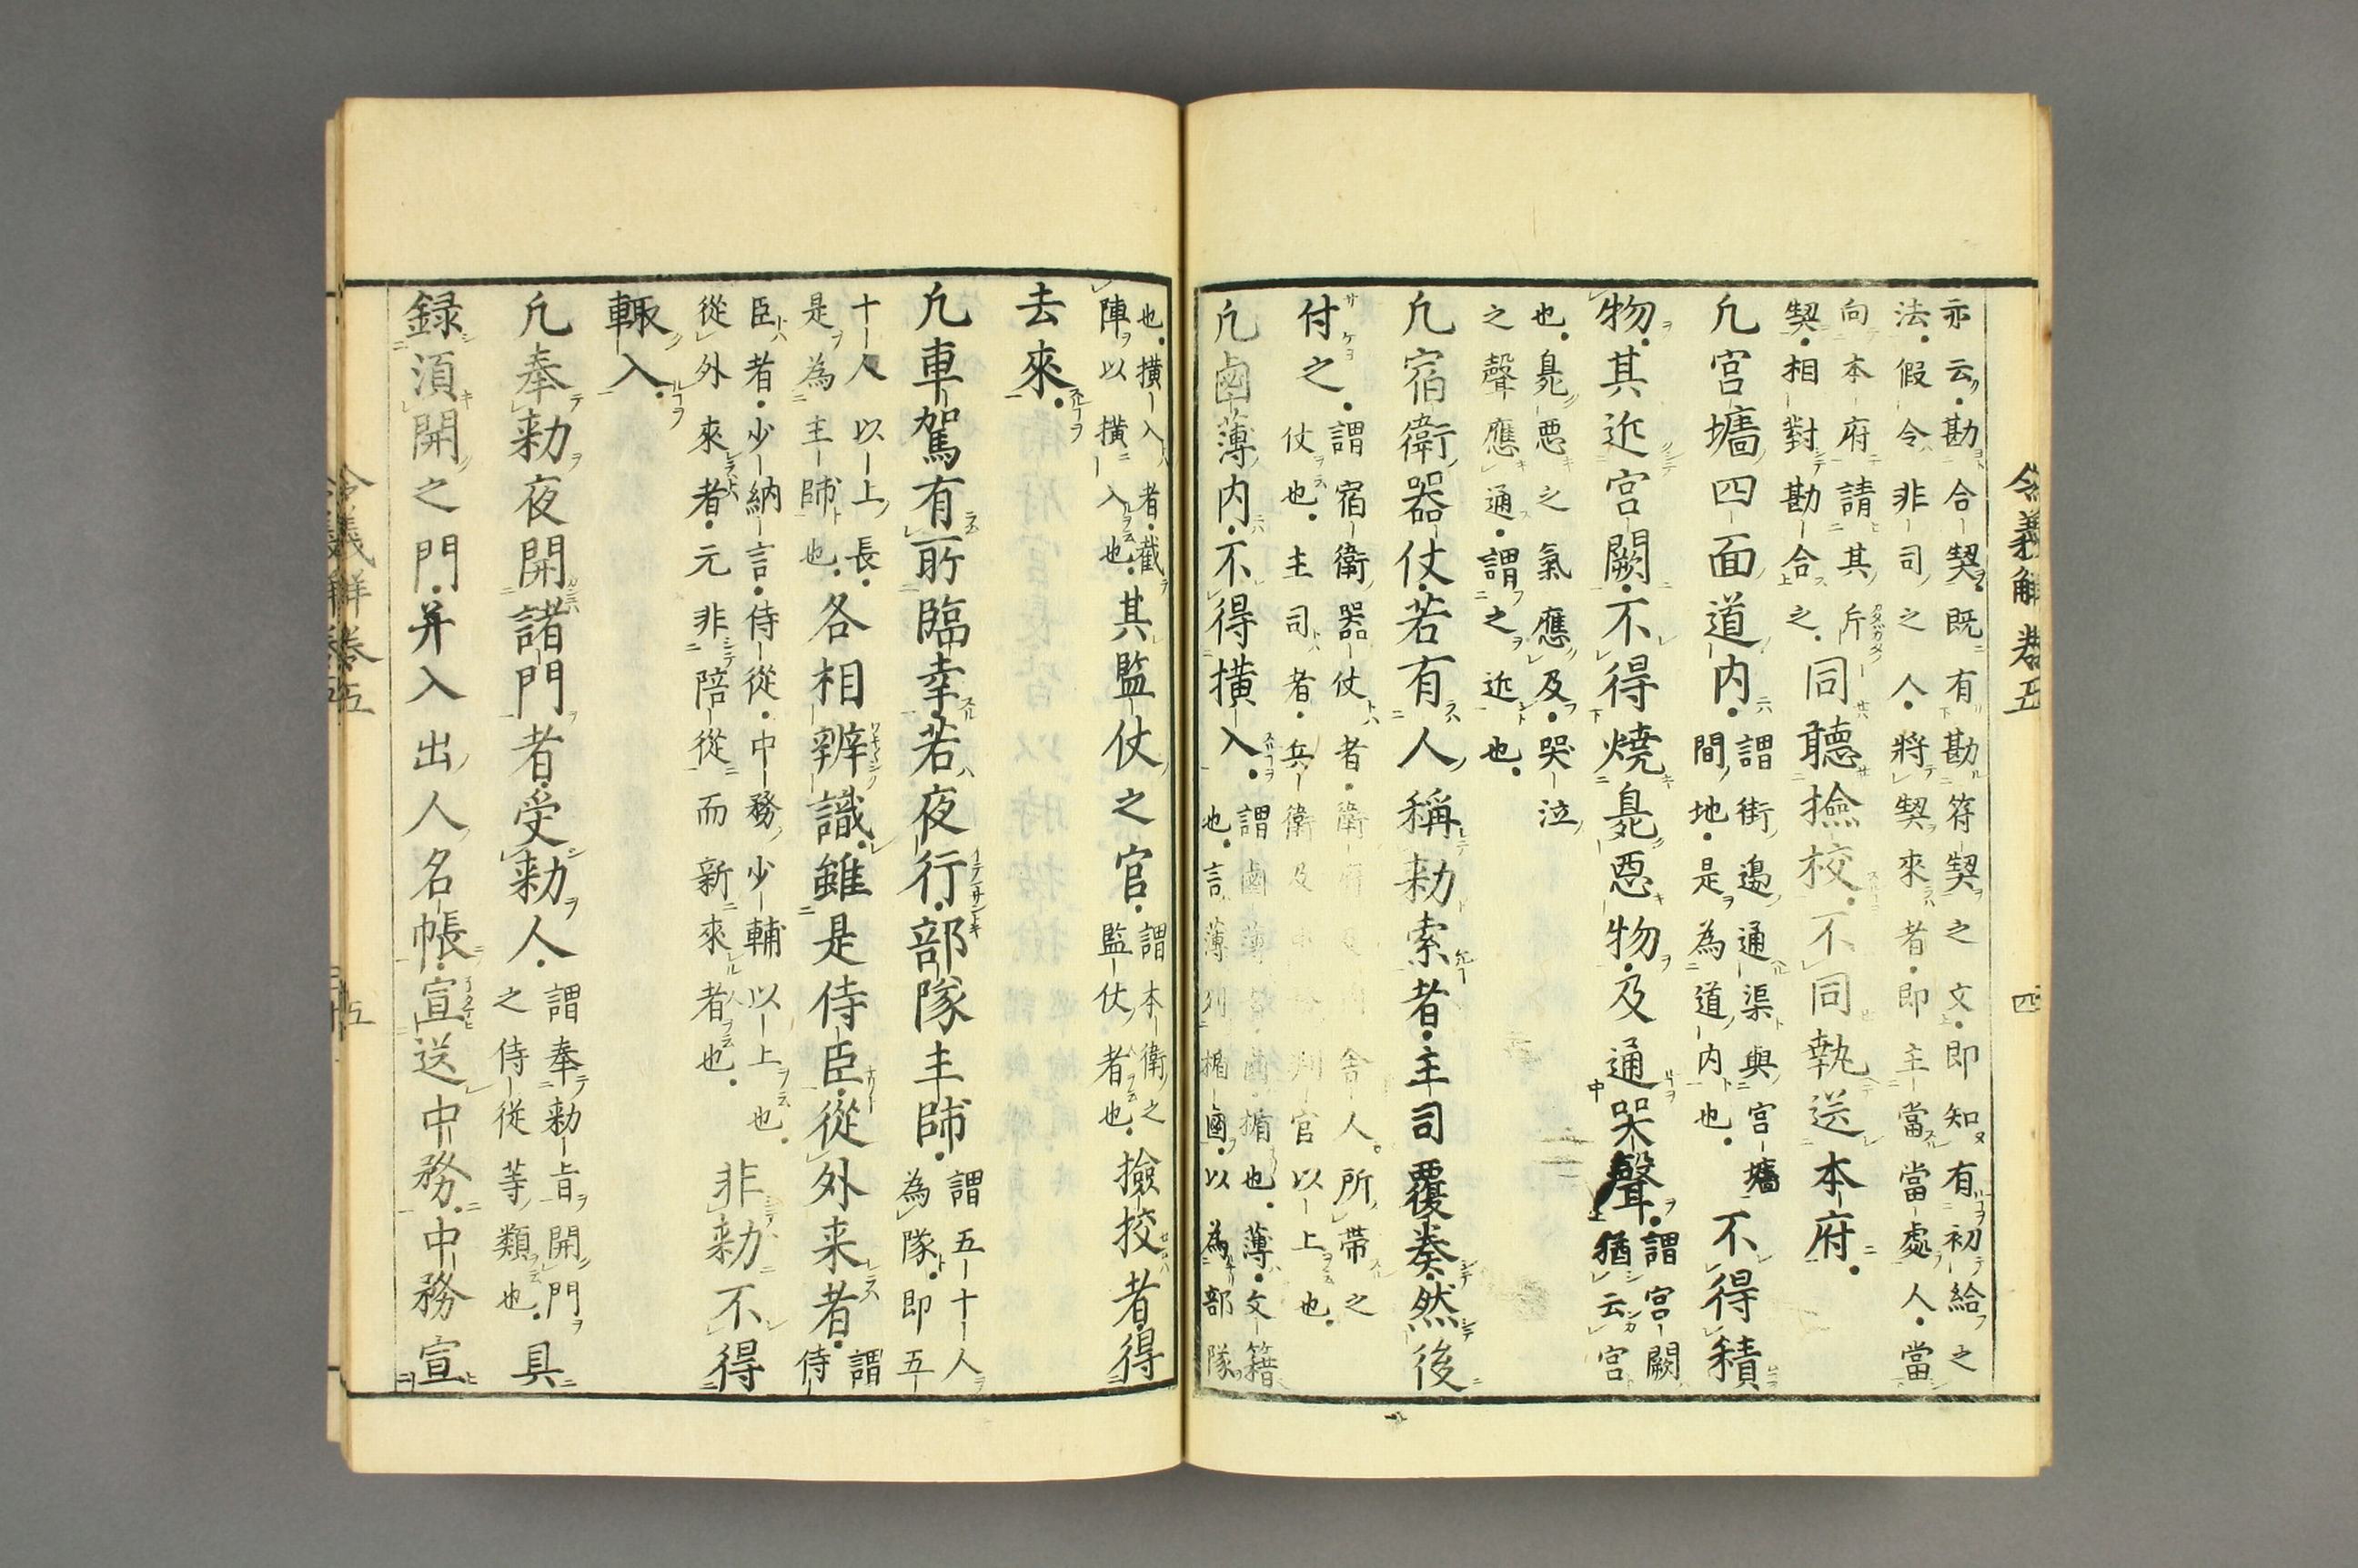 令義解卷五
四
亦云勘合契既有勘符契之文即知有初給之
法假令非司之人將契來者即主當當處人當
向本府請其斤
契相對勘合之同聽撿挍不同執送本府
凢宮墻四面道内謂街邊通渠與宮墻
間地是為道内也不得積
物其近宮闕不得燒臰惡物及通哭聲謂宮闕
猶云宮
也臰惡之氣應及哭泣
之聲應通謂之近也
凢宿衛器仗若有人稱勑索者主司覆奏然後
付之謂宿衛器仗者衛府及内舎人所帶之
仗也主司者兵衛及中務判官以上也
凢鹵薄内不得横入謂鹵薄者鹵楯也薄文籍
也言薄列楯鹵以為部隊
也横入者截
陣以横入也其監仗之官謂本衛之
監仗者也撿挍者得
去來
凢車駕有所臨幸若夜行部隊主師謂五十人
為隊即五
十人以上長
是為主師也各相辨識雖是侍臣從外来者謂
侍
臣者少納言侍從中務少輔以上也
從外來者元非陪從而新來者也非勑不得
輙入
凢奉勑夜開諸門者受勑人謂奉勑旨開門
之侍従等類也具
録湏開之門并入出人名帳宣送中務中務宣
令義解卷五
五